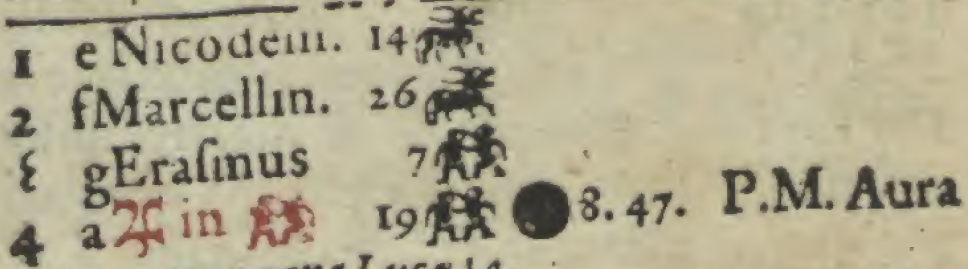 1 e Nicodem. 14 ♉
2 f Marcellin. 26 ♉
3 g Eraſmus 7 ♊
4 a ♃ in ♊ 19 ♊ ● 8. 47. P.M. Aura